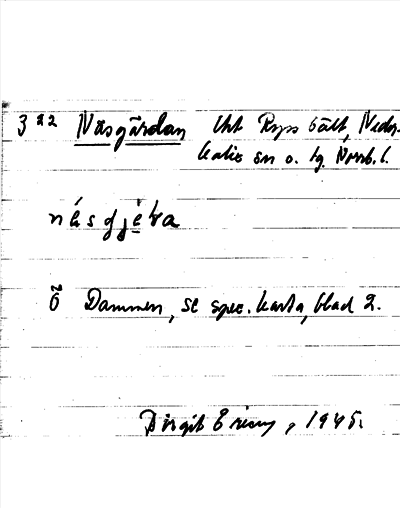 3²² Näsgärdan tht Ryss bält, Neder-
kalix sn o. tg. Norrb. l.
nèsgjèṛa
Ö Dammen, se spec. karta, blad 2.
Birgit 1945.